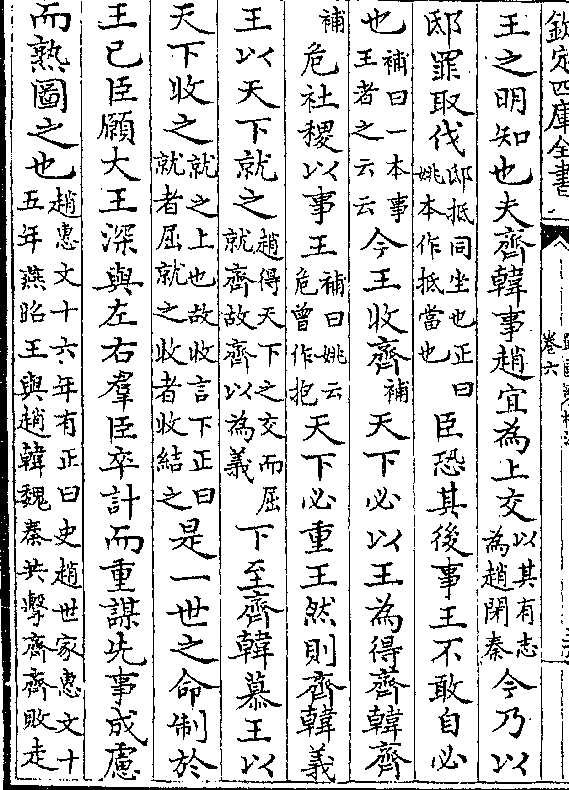 欽定四庫全書
卷六
王之明知也夫齊韓事趙宜為上交以其有志為趙閉秦今乃以
邸罪取伐邸抵同坐也正曰姚本作抵當也臣恐其後事王不敢自必
也補曰一本事王者之云云今王收齊補天下必以王為得齊韓齊
補危社稷以事王補曰姚云危曾作抱天下必重王然則齊韓義
王以天下就之趙得天下之交而屈就齊故齊以為義下至齊韓慕王以
天下收之就之上也故收言下正曰就者屈就之收者收結之是一世之命制於
王已臣願大王深與左右羣臣卒計而重謀先事成慮
而熟圖之也趙惠文十六年有正曰史趙世家惠文十五年燕昭王與趙韓魏秦共擊齊齊敗走